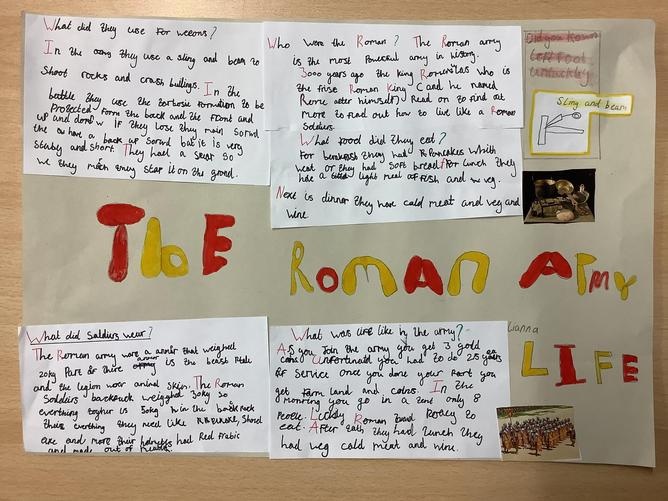 What did they use for weeons?
In the army they use a sling and beam to
shoot rocks and crash bullings. In the
battle they use the tortosie formation to be
Protected form the back and the Front and
up and donw If they lose they main Sorwd
the ow have a back up Sorwd but it is very
Stubby and short. They had a Spear So
we they march they stap it on the grond.
Who were the Roman? The Roman army
is the most powerful army in history.
3000 years ago the king Romulas who is
the frise Roman King (and he named
Rome after himself) Read on to find at
more to find out how to live like a Roman
Soldiers
What food did they eat?
For breakfast they had Pancakes With
weat or they had Soft bread. For lunch they
had a light meal of Fish and veg.
Next is dinner they have cald meat and veg and
wine.
Did you know
left foot
unlucky
Sling and beam
The Roman Army
What did Saldirs wear?
The Roman army wore a armor that weighet
20kg Part of there armor is the beast Plate
and the legion wear animal skin. The Roman
Soldiers backpack weighed 30kg So
everthing togther is 50kg. In the back Pack
Thair everthing they need like blankit, Shovel
axe and more Their helmets had Red Frabic
and made out of
What was life like in the army?
As you Join the army you get 3 gold
coins unfortunatd you had to do 25 years
of service Once you done your Part you
get farm land and coins. In the
monring you go in a tent only 8
People. Luckly Roman had Poragy to
eat. After eath they had lunch they
had veg cald meat and wine.
Lianna
LIFE